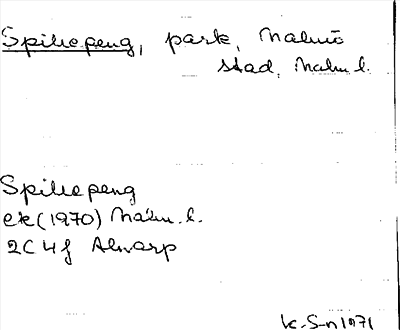 Spikepeng, park, Malmö
stad, Malm l.
Spikepeng
ek (1970) Malm. l.
2C 4f Alnarp
K. S-n 1971